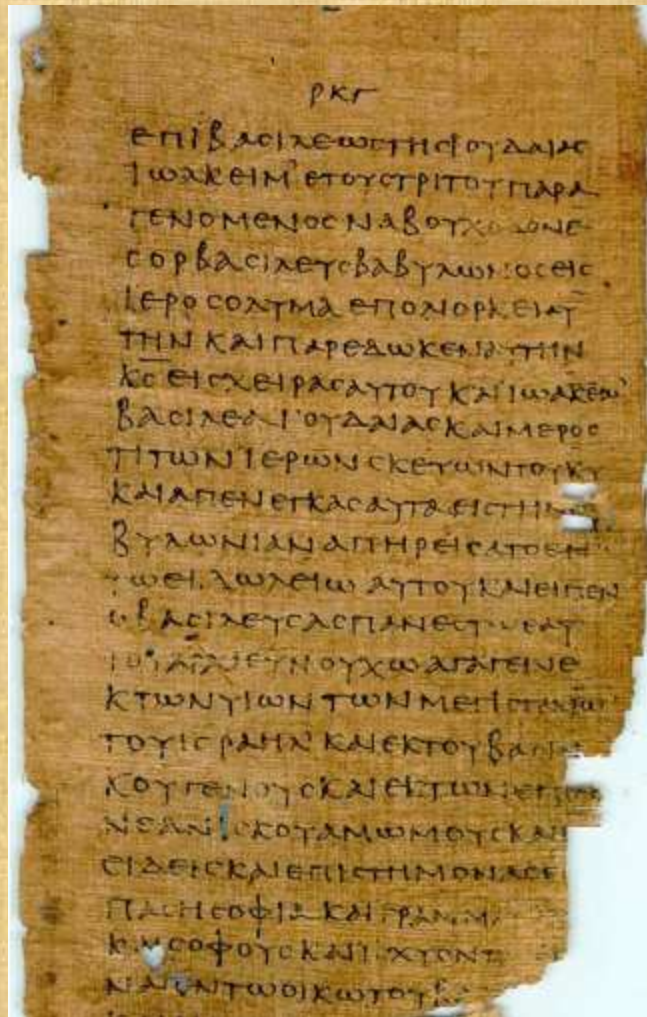 ρκγ
επιβασιλεωστησϊουδαιασ
ϊωακειμ ετουστριτουπαρα
γενομενοσναβουχοδονο
σορβασιλευσβαβυλωνοσεισ
ϊεροσολυμα επολιορκειαυ
την καιπαρεδωκεναυτην
κ̅σ̅ εισχειρασαυτου καιϊωακειμ
βασιλεαϊουδαιασκαιμεροσ
τιτωνϊερωνσκευωντουκ̅υ̅
καιαπενεγκασαυταεισ
βυλωνιαν απηρεισατοεν
ειδωλειω αυτου καιειπεν
βασιλευσασπανεσ
ευνουχωαγαγεινε
κτωνυιωντωνμεγιστανων
τουισραηλ καιεκτουβασι
κουγενουσκαιεκτων
νεανισκουσαμωμουσκαι
ειδεισκαιεπιστημονασε
πασησοφια καιγραμμα
σοφουσκαιϊσχυοντ
ντωοικωτουβ